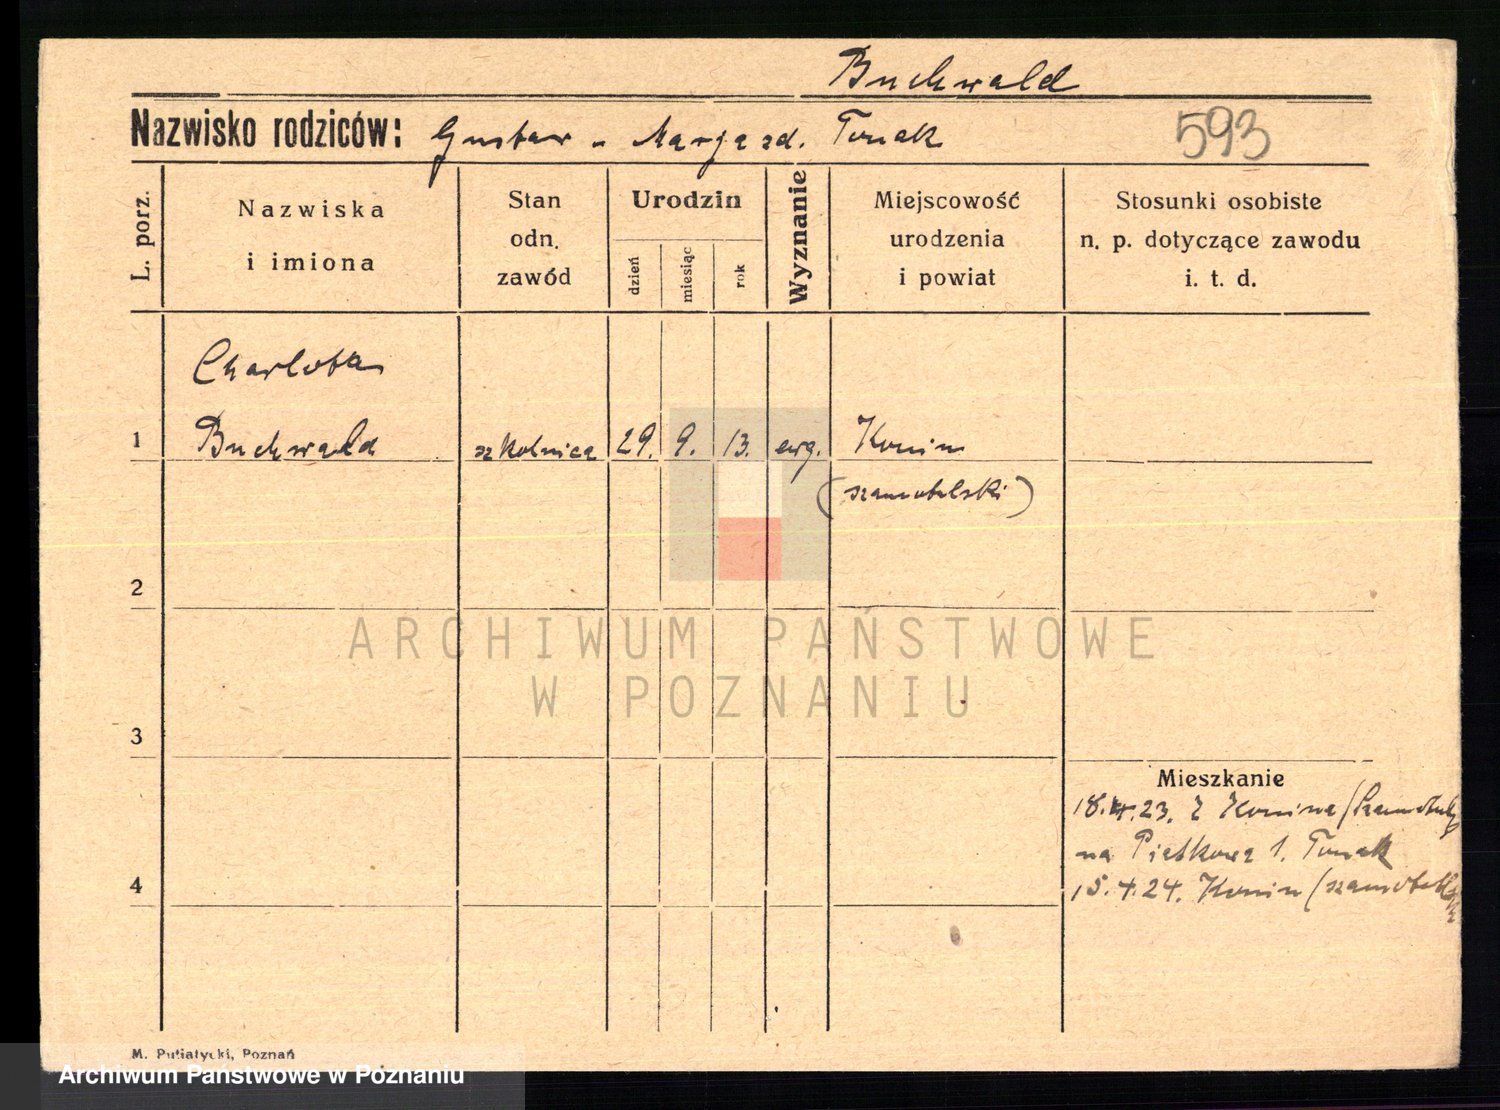 Buchwald
Nazwisko rodziców: Gustaw u Marja zd. Tonak
593
L. porz.
Nazwiska
i imiona
Stan
odn.
zawód
Urodzin
dzień
miesiąc
rok
Wyznanie
Miejscowość
urodzenia
i powiat
Stosunki osobiste
n. p. dotyczące zawodu
i. t. d.
Charlota
1 Buchwald szkolnica 29. 9. 13. ewg. Konin
(szamotulski)
2
ARCHIWUM PAŃSTWOWE
W POZNANIU
3
Mieszkanie
18.4.23. z Konina (Szamotuły
na Piątkową 1. Tonak
4
15.4.24. Konin (szamotulski
M. Putiatycki, Poznań
Archiwum Państwowe w Poznaniu